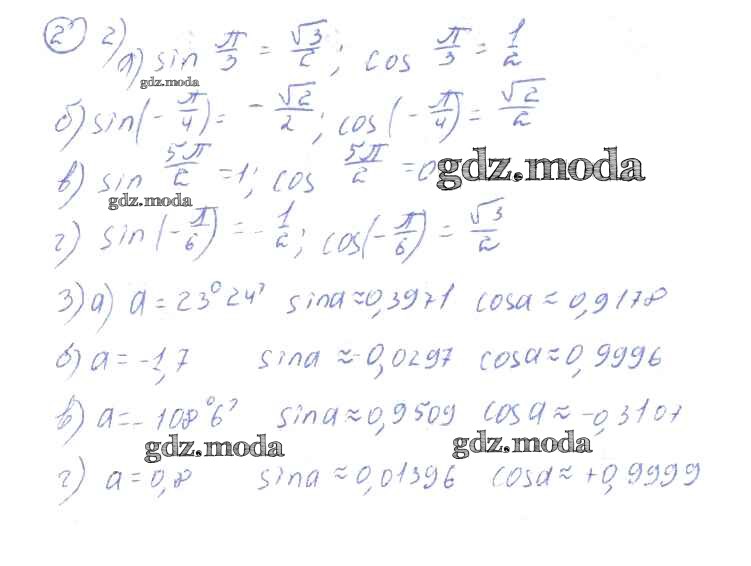 2) 2) а) sin π/3 = √3/2; cos π/3 = 1/2
gdz.moda
б) sin(-π/4) = -√2/2; cos(-π/4) = √2/2
в) sin 5π/2 = 1; cos 5π/2 = 0
gdz.moda
gdz.moda
г) sin(-π/6) = -1/2; cos(-π/6) = √3/2
3) а) a = 23°24' sina ≈ 0,3971 cosa ≈ 0,9178
б) a = -1,7 sina ≈ -0,0297 cosa ≈ 0,9996
в) a = -108°6' sina ≈ 0,9509 cosa ≈ -0,3107
gdz.moda gdz.moda
г) a = 0,8 sina ≈ 0,01396 cosa ≈ +0,9999